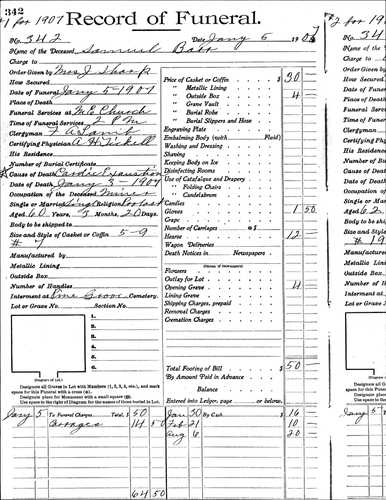 342
#1 for 1907 Record of Funeral. #2 for 190
No. 342 Date Jany 5 1907
Name of the Deceased Samuel Barr
Charge to
Order Given by Mrs J Sharp
How Secured
Date of Funeral Jany 5-1907
Place of Death
Funeral Services at M.E. Church
Time of Funeral Services 2 P.M.
Clergyman F A Lamb
Certifying Physician A H Tickell
His Residence
Number of Burial Certificate
Cause of Death Cardiac Exhaustion
Date of Death Jany 3-1907
Occupation of the Deceased Miner
Single or Married Sing Religion Protast
Aged 60 Years, 3 Months, 20 Days.
Body to be shipped to
Size and Style of Casket or Coffin 5-9
# 7
Manufactured by
Metallic Lining
Outside Box
Number of Handles
Interment at Pine Grove Cemetery.
Lot or Grave No. Section No.
1.
2.
3.
4.
5.
6.
(Diagram of Lot.)
Designate all Graves in Lot with Numbers (1, 2, 3, 4, etc.), and mark
space for this Funeral with a cross (x).
Designate place of Monument with a small square (□).
Use space to the right of Diagram for the names of those buried in Lot.
Price of Casket or Coffin $ 30 —
" Metallic Lining
" Outside Box 4 —
" Grave Vault
" Burial Robe
" Burial Slippers and Hose
Engraving Plate
Embalming Body (with Fluid)
Washing and Dressing
Shaving
Keeping Body on Ice
Disinfecting Rooms
Use of Catafalque and Drapery
" Folding Chairs
" Candelabrum
Candles
Gloves 1 50
Crape
Number of Carriages @ $
Hearse 12 —
Wagon Deliveries
Death Notices in Newspapers
(Names of Newspapers)
Flowers
Outlay for Lot
Opening Grave 4 —
Lining Grave
Shipping Charges, prepaid
Removal Charges
Cremation Charges
Total Footing of Bill $ 50 —
By Amount Paid in Advance
Balance
Entered into Ledger, page or below.
Jany 5 To Funeral Charges Total, $ 50
Carrages 14 50
64 50
Jan 30 By Cash $ 16
Feb 21 10 —
Aug 6 20
No. 34
Name of the
Charge to
Order Given
How Secured
Date of Funeral
Place of Death
Funeral Services
Time of Funeral
Clergyman
Certifying
His Residence
Number of
Cause of Death
Date of Death
Occupation
Single or
Aged 62
Body to be
Size and Style
# 19
Manufactured
Metallic
Outside
Number of
Interment
Lot or Grave
Designate
space for
Designate
Use space
Jany 5